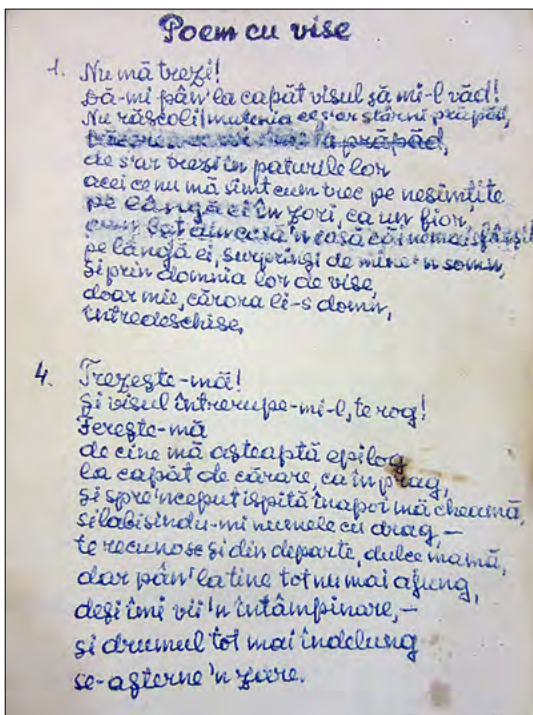 Poem cu vise
1. Nu mă trezi!
Dă-mi pân' la capăt visul să mi-l văd!
Nu răscoli! muțenia ce s'ar stârni prăpăd,
prăpăd,
de s'ar trezi în paturile lor
acei ce nu mă simt cum trec pe nesimțite
pe lângă ei în zori, ca un fior,
cum bat din casă'n casă căi nemaisfârșite
pe lângă ei, surprinși de mine'n somn,
și prin domnia lor de vise,
doar mie, cărora li-s domn,
întredeschise.
4. Trezește-mă!
Și visul întrerupe-mi-l, te rog!
Ferește-mă
de cine mă așteaptă epilog
la capăt de cărare, ca în prag,
și spre'nceput ispită înapoi mă cheamă,
silabisindu-mi numele cu drag, —
te recunosc și din departe, dulce mamă,
dar pân' la tine tot nu mai ajung,
deși îmi vii 'n întâmpinare, —
și drumul tot mai îndelung
se-așterne 'n zare.